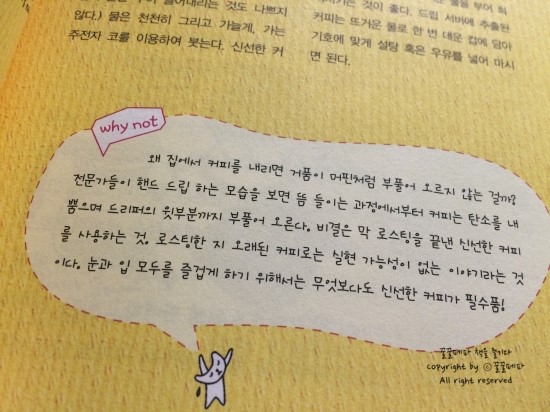 들어내리는 것도 나쁘지
않다.) 물은 천천히 그리고 가늘게, 가는
주전자 코를 이용하여 붓는다. 신선한 커
물을 부어 희
것이 좋다. 드립 서버에 추출된
커피는 뜨거운 물로 한 번 데운 컵에 담아
기호에 맞게 설탕 혹은 우유를 넣어 마시
면 된다.
why not
왜 집에서 커피를 내리면 거품이 머핀처럼 부풀어 오르지 않는 걸까?
전문가들이 핸드 드립 하는 모습을 보면 뜸 들이는 과정에서부터 커피는 탄소를 내
뿜으며 드리퍼의 윗부분까지 부풀어 오른다. 비결은 막 로스팅을 끝낸 신선한 커피
를 사용하는 것. 로스팅한 지 오래된 커피로는 실현 가능성이 없는 이야기라는 것
이다. 눈과 입 모두를 즐겁게 하기 위해서는 무엇보다도 신선한 커피가 필수품!
책을 즐기다
copyright by ⓒ
All right reserved